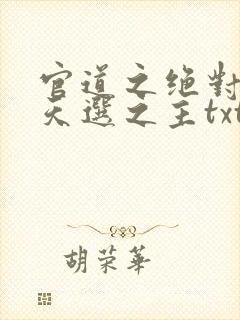 官道之绝對
天選之主txt
胡荣華